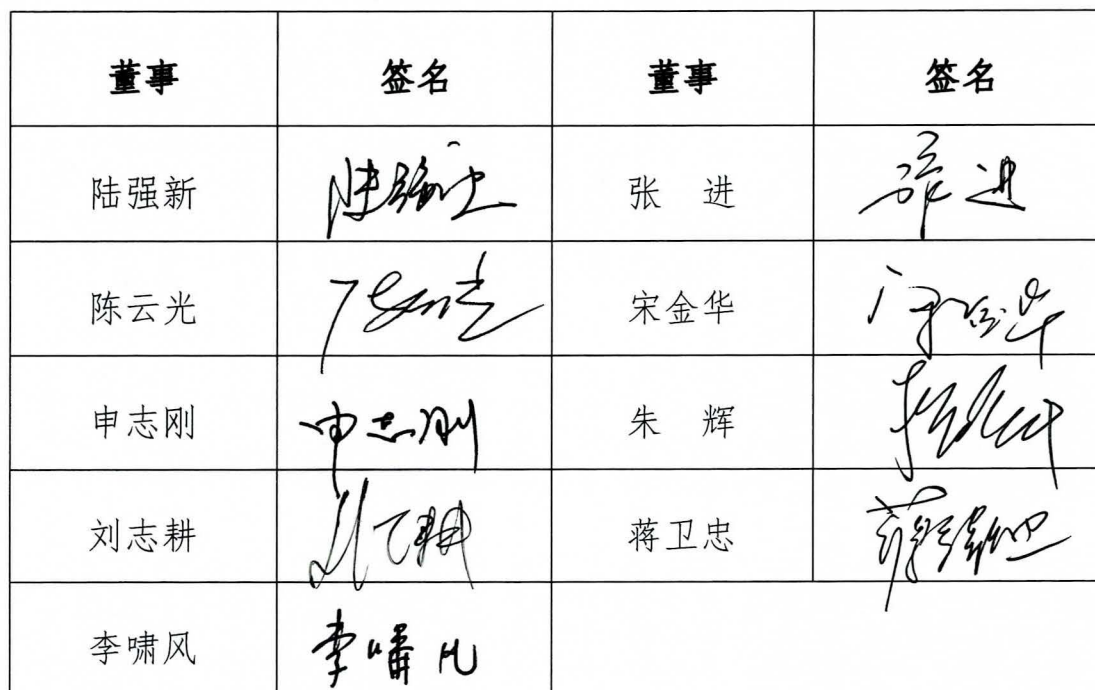 董事 签名 董事 签名
陆强新 陆强新 张 进 张进
陈云光 陈云光 宋金华 宋金华
申志刚 申志刚 朱 辉
刘志耕 刘志耕 蒋卫忠
李啸风 李啸风